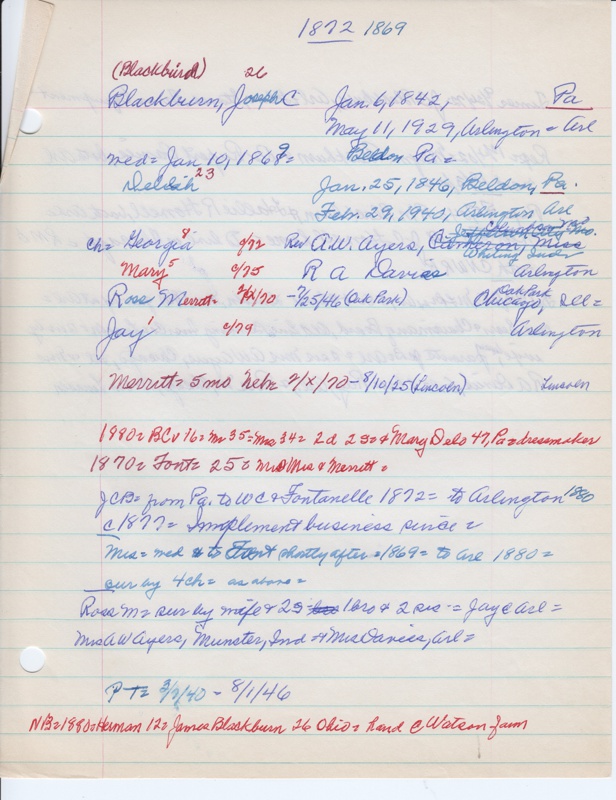 1872 1869
(Blackburd) 26
Blackburn, Joseph C Jan. 6, 1842, Pa
May 11, 1929, Arlington = Arl
med = Jan 10, 1869 = Beldon Pa =
Deliah 23 Jan. 25, 1846, Beldon, Pa.
Febr. 29, 1940, Arlington Arl
ch = Georgia 8 c/72 Rev A.W. Ayers, Cameron, Miss
Mary 5 c/75 R A Davies Arlington
Rose Merritt = 2/X/70 - 7/25/46 (Oak Park) Oak Park Chicago, Ill =
Jay 1 c/79 Arlington
Merritt = 5 mo Nebr 2/X/70 - 8/10/25 (Lincoln) Lincoln
1880 = BCv 16 = Mr 35 = Mrs 34 = 2d 2s = & Mary Delo 47, Pa = dressmaker
1870 = Font = 25 = Mr & Mrs & Merritt =
JCB = from Pa. to WC & Fontanelle 1872 = to Arlington 1880
c 1877 = Implement business since =
Mrs = med & to Font shortly after = 1869 = to Arl 1880 =
sur by 4 ch = as above =
Ross M = sur by wife & 2s = 1 bro & 2 sis = Jay c Arl =
Mrs A W Ayers, Munster, Ind = & Mrs Davies, Arl =
PT = 3/7/40 - 8/1/46
NB = 1880 = Herman 12 = James Blackburn 26 Ohio = hand c Watson farm